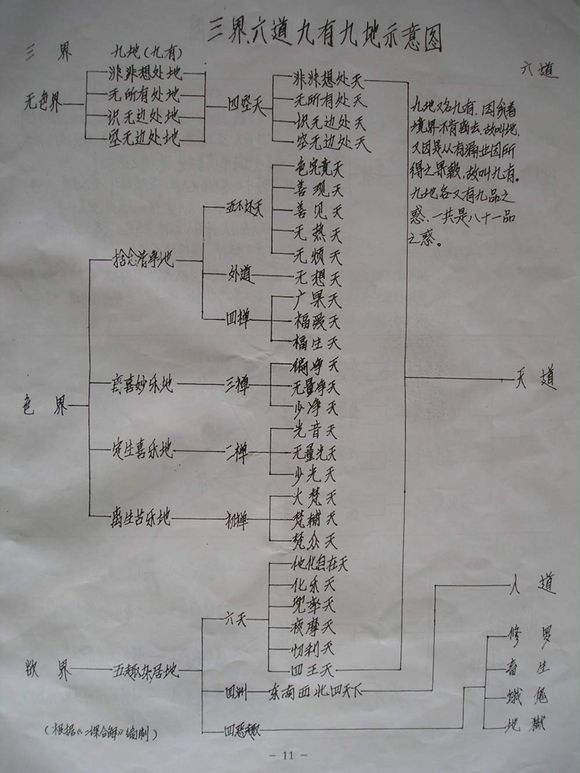 三界六道九有九地示意图
三界 九地(九有) 六道
无色界
非非想处地
无所有处地
识无边处地
空无边处地
四空天
非非想处天
无所有处天
识无边处天
空无边处天
九地又名九有,因
境界不
又因是从有漏业因所
得之果报,故叫九有。
九地各又有九品之
惑,一共是八十一品
之惑。
色界
舍念清净地
五不还天
色究竟天
善现天
善见天
无热天
无烦天
外道
无想天
四禅
广果天
福爱天
福生天
喜妙乐地
三禅
遍净天
无量净天
少净天
定生喜乐地
二禅
光音天
无量光天
少光天
离生喜乐地
初禅
大梵天
梵辅天
梵众天
天道
欲界
五趣杂居地
六天
他化自在天
化乐天
兜率天
夜摩天
忉利天
四王天
四洲
东南西北四天下
四恶趣
人道
修罗
畜生
饿鬼
地狱
(根据《二课合解》编制)
- 11 -